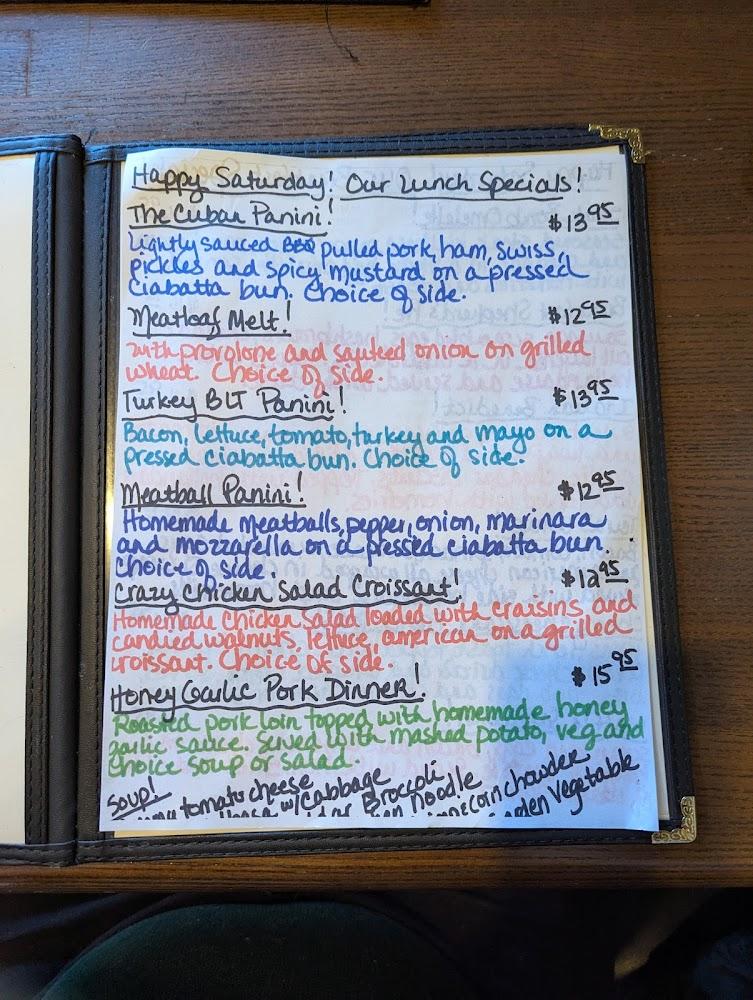 Happy Saturday! Our Lunch Specials!
The Cuban Panini! $13.95
Lightly sauced BBQ pulled pork, ham, swiss,
pickles and spicy mustard on a pressed
ciabatta bun. Choice of side.
Meatloaf Melt! $12.95
with provolone and sauteed onion on grilled
wheat. Choice of side.
Turkey BLT Panini! $13.95
Bacon, lettuce, tomato, turkey and mayo on a
pressed ciabatta bun. Choice of side.
Meatball Panini! $12.95
Homemade meatballs, pepper, onion, marinara
and mozzarella on a pressed ciabatta bun.
Choice of side.
Crazy Chicken Salad Croissant! $12.95
Homemade chicken salad loaded with craisins and
candied walnuts, lettuce, american on a grilled
croissant. Choice of side.
Honey Garlic Pork Dinner! $15.95
Roasted pork loin topped with homemade honey
garlic sauce. Served with mashed potato, veg and
choice soup or salad.
Soup!
tomato cheese
w/Cabbage
Broccoli
Noodle
corn chowder
Vegetable